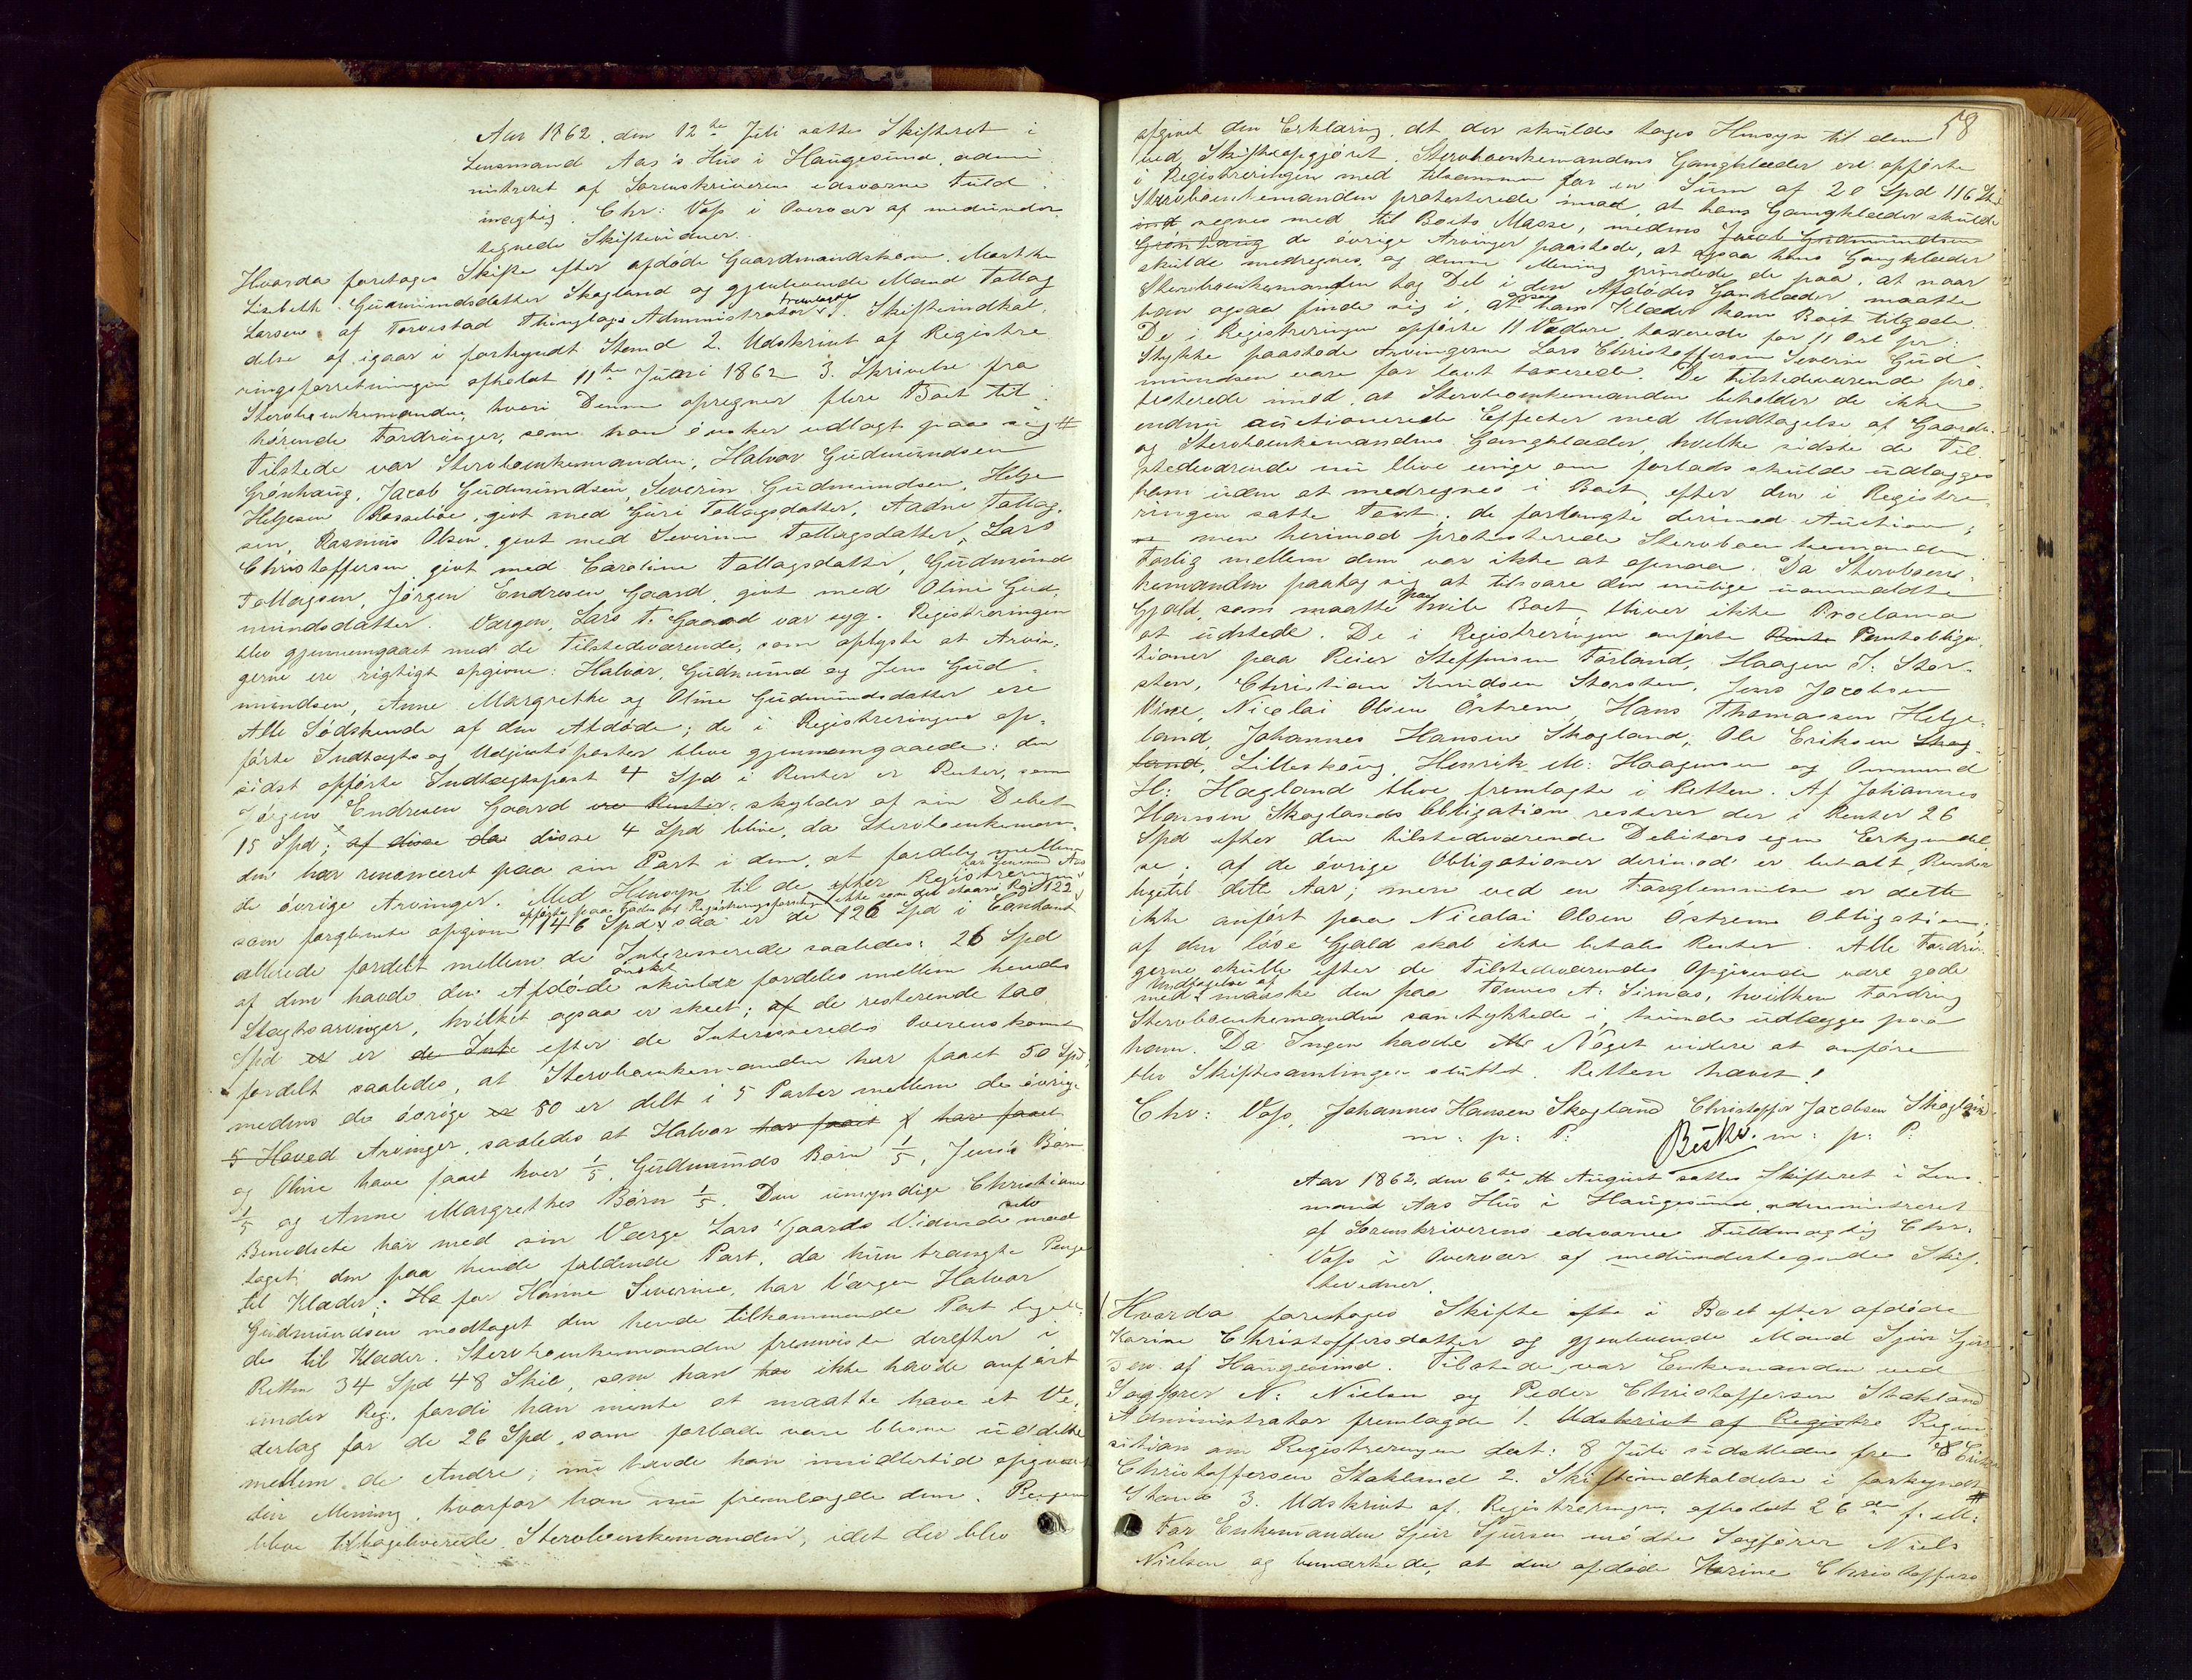 Aar 1862, den 12te Juli sattes Skifteret i
Lensmand Aas's Hus i Haugesund, admi
nistreret af Sorenskriverens edsvorne Fuld
mægtig Chr: Voss i Overvær af medunder
tegnede Skiftevidner.
Hvorda foretoges Skifte efter afdøde Gaardmandskone Marthe
Lisbeth Gudmundsdatter Skogland og gjenlevende Mand Tollag
Larsen af Torvestad Thinglag. Administrator fremlagde 1. Skifteindkal
delse af igaar i forkyndt Stand 2. Udskrivt af Registre
ringsforretningen afholdt 11te Juni 1862 3. Skrivelse fra
Stervboenkemanden, hvori Denne opregner flere Boet til
hørende Fordringer, som han ønsker udlagt paa sig #
Tilstede var Stervboenkemanden, Halvor Gudmundsen
Grønhaug, Jacob Gudmundsen, Severin Gudmundsen, Helge
Helgesen Rossebøe, givt med Guri Tollagsdatter, Aadne Tollag
sen, Rasmus Olsen, givt med Severine Tollagsdatter, Lars
Christoffersen givt med Caroline Tollagsdatter, Gudmund
Tollagsen, Jørgen Endresen Gaard, givt med Oline Gud
mundsdatter. Værgen, Lars T. Gaard var syg. Registreringen
blev gjennemgaaet med de Tilstedeværende, som oplyste at Arvin
gerne ere rigtigt opgivne: Halvor, Gudmund og Jens Gud
mundsen, Anne Margrethe og Oline Gudmundsdatter ere
Alle Sødskende af den Afdøde; de i Registreringen op
førte Indtægts og Udgivtsposter bleve gjennemgaaede: den
sidst opførte Indtægtspost 4 Spd i Renter er Renter, som
Jørgen Endresen Gaard ere Renter, skylder af sin Debet
15 Spd; af disse da disse 4 Spd blive, da Stervboenkeman
den har renonceret paa sin Part i dem, at fordele mellem
de øvrige Arvinger. Med Hensyn til de efter Registreringen
har Lensmand Aas
som forglemte opgivne 146 Spd saa er de 126 Spd i Contant
opførte paa Registreringsforretn ikke som der staar Reg 122
allerede fordelt mellem de Interesserede saaledes: 26 Spd
af dem havde den Afdøde ønsket skulde fordeles mellem hendes
Slagtsarvinger, hvilket ogsaa er skeet; af de resterende 100
Spd er er de Inte efter de Interesseredes Overenskomst
fordelt saaledes, at Stervboenkemanden har faaet 50 Spd,
medens de øvrige er 50 er delt i 5 Parter mellem de øvrige
5 Hoved Arvinger, saaledes at Halvor har faaet har faaet
og Oline have faaet hver 1/5, Gudmunds Børn 1/5, Jens's Børn
1/5 og Anne Margrethes Børn 1/5. Den umyndige Christiane
Benedicte har med sin Værge Lars Gaards Vidende selv mod
taget den paa hende faldende Part, da hun trængte Penge
til Klæder; Ha for Hanne Severine, har Værgen Halvor
Gudmundsen modtaget den hende tilkommende Part ligele
des til Klæder. Stervboenkemanden fremviste derefter i
Retten 34 Spd 48 Skil, som han har ikke havde anført
under Reg. fordi han mente at maatte have et Ve
derlag for de 26 Spd, som forlods vare blevne uddelte
mellem de Andre; nu havde han imidlertid opgivet
den Mening, hvorfor han nu fremlagde dem. Pengene
bleve tilbageleverede Stervboenkemanden, idet der blev
58
afgivet den Erklæring, at der skulde tages Hensyn til dem
ved Skifteopgjøret. Stervboenkemandens Gangklæder ere opførte
i Registreringen med tilsammen for en Sum af 20 Spd 116 Sk
Stervboenkemanden protesterede imod, at hans Gangklæder skulde
ind regnes med til Boets Masse, medens Jacob Gudmundsen
Grønhaug de øvrige Arvinger paastode, at ogsaa hans Gangklæder
skulde medregnes, og denne Mening grundede de paa, at naar
Stervboenkemanden tog Del i den Afdødes Gangklæder, maatte
han ogsaa finde sig i, at ogsaa hans Klæder kom Boet tilgode.
De i Registreringen opførte 11 Vædere, taxerede for 11 Ort pr:
Stykke paastode Arvingerne Lars Christoffersen Severin Gud
mundsen vare for lavt taxerede. De Tilstedeværende pro
testerede imod, at Stervboenkemanden beholder de ikke
endnu auctionerede Effecter med Undtagelse af Gaarden
og Stervboenkemandens Gangklæder, hvilke sidste de Til
stedeværende nu bleve enige om forlods skulde udlægges
ham uden at medregnes i Boet, efter den i Registre
ringen satte Taxt; de forlangte derimod Auction;
men herimod protesterede Stervboenkemanden.
Forlig mellem dem var ikke at opnaa. Da Stervboen
kemanden paatog sig at tilsvare den mulige uanmeldte
Gjæld, som maatte paa hvile Boet bliver ikke Proclama
at udstede. De i Registreringen anførte Rente Pantobliga
tioner paa Reier Steffensen Førland, Haagen J. Stor
sten, Christian Knudsen Storsten, Jens Jacobsen
Viine, Nicolai Olsen Østrem, Hans Thomassen Helge
land, Johannes Hansen Skogland, Ole Eriksen Skog
land, Lilleskoug, Henrik M: Haagensen og Ommund
H: Hagland bleve fremlagte i Retten. Af Johannes
Hansen Skoglands Obligation resterer der i Renter 26
Spd efter den tilstedeværende Debitors egen Erkjendel
se; af de øvrige Obligationer derimod er betalt Renter
ligetil dette Aar; men ved en Forglemmelse er dette
ikke anført paa Nicolai Olsen Østrems Obligation;
af den løse Gjæld skal ikke betales Renter. Alle Fordrin
gerne skulle efter de Tilstedeværendes Opgivende være gode
med Undtagelse af maaske den paa Tønnes A. Sirnæs, hvilken Fordring
Stervboenkemanden samtykkede i, kunde udlægges paa
ham. Da Ingen havde Noget videre at anføre
blev Skiftesamlingen sluttet. Retten hævet!
Chr: Voss, Johannes Hansen Skogland Christoffer Jacobsen Skogland
m: p: P: m: p: P:
Beskr.
Aar 1862, den 6te August sattes Skifteret i Lens
mand Aas Hus i Haugesund, administreret
af Sorenskriverens edsvorne Fuldmægtig Chr.
Voss i Overvær af medundertegnede Skif
tevidner.
Hvorda foretoges Skifte efte i Boet efter afdøde
Karine Christoffersdatter og gjenlevende Mand Sjur Sjur
sen af Haugesund. Tilstede var Enkemanden ved
Sagfører N: Nielsen og Peder Christoffersen Stakland
Administrator fremlagde 1. Udskrivt af Registre Reqvi
sition om Registreringen dat: 8 Juli sidstleden fra Erik
Christoffersen Stakland 2. Skifteindkaldelse i forkyndt
Stand 3. Udskrivt af Registreringen afholdt 26de f: M: #
For Enkemanden Sjur Sjursen mødte Sagfører Niels
Nielsen og bemærkede, at den afdøde Karine Christoffers